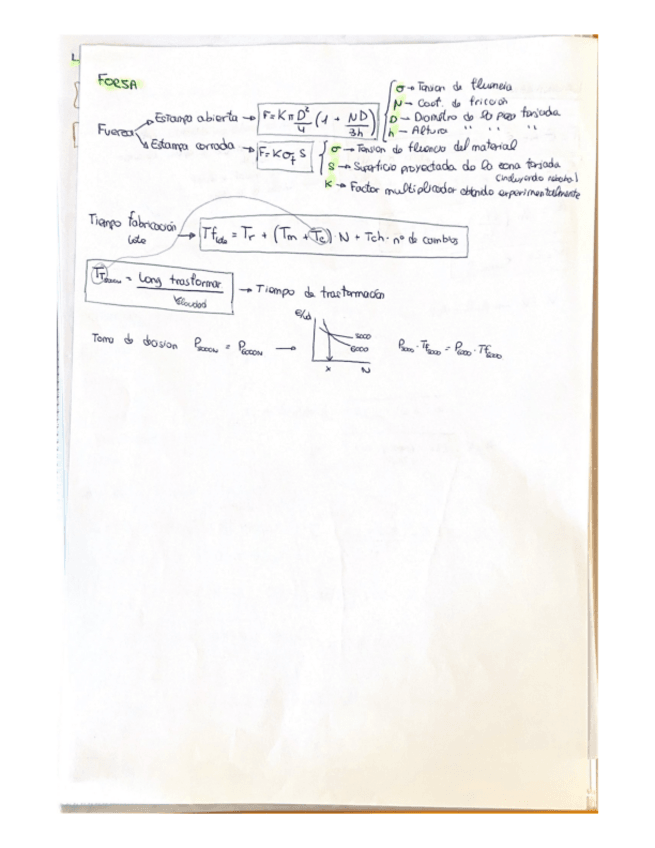 FORJA
Fuerza
Estampa abierta → F = K π D²/4 (1 + ND/3h)
σ → Tension de fluencia
N → Coef. de friccion
D → Diametro de la pieza forjada
h → Altura " " "
Estampa cerrada → F = K σf S
σ → Tension de fluencia del material
S → Superficie proyectada de la zona forjada
(incluyendo rebaba)
K → Factor multiplicador obtenido experimentalmente
Tiempo fabricación lote → Tf lote = Tr + (Tm + Tc) · N + Tch · nº de cambios
TT 5000N = Long trasformar / Velocidad → Tiempo de trasformación
Toma de decision P5000N = P6000N →
€/ud
5000
6000
X N
P5000 · Tf5000 = P6000 · Tf6000